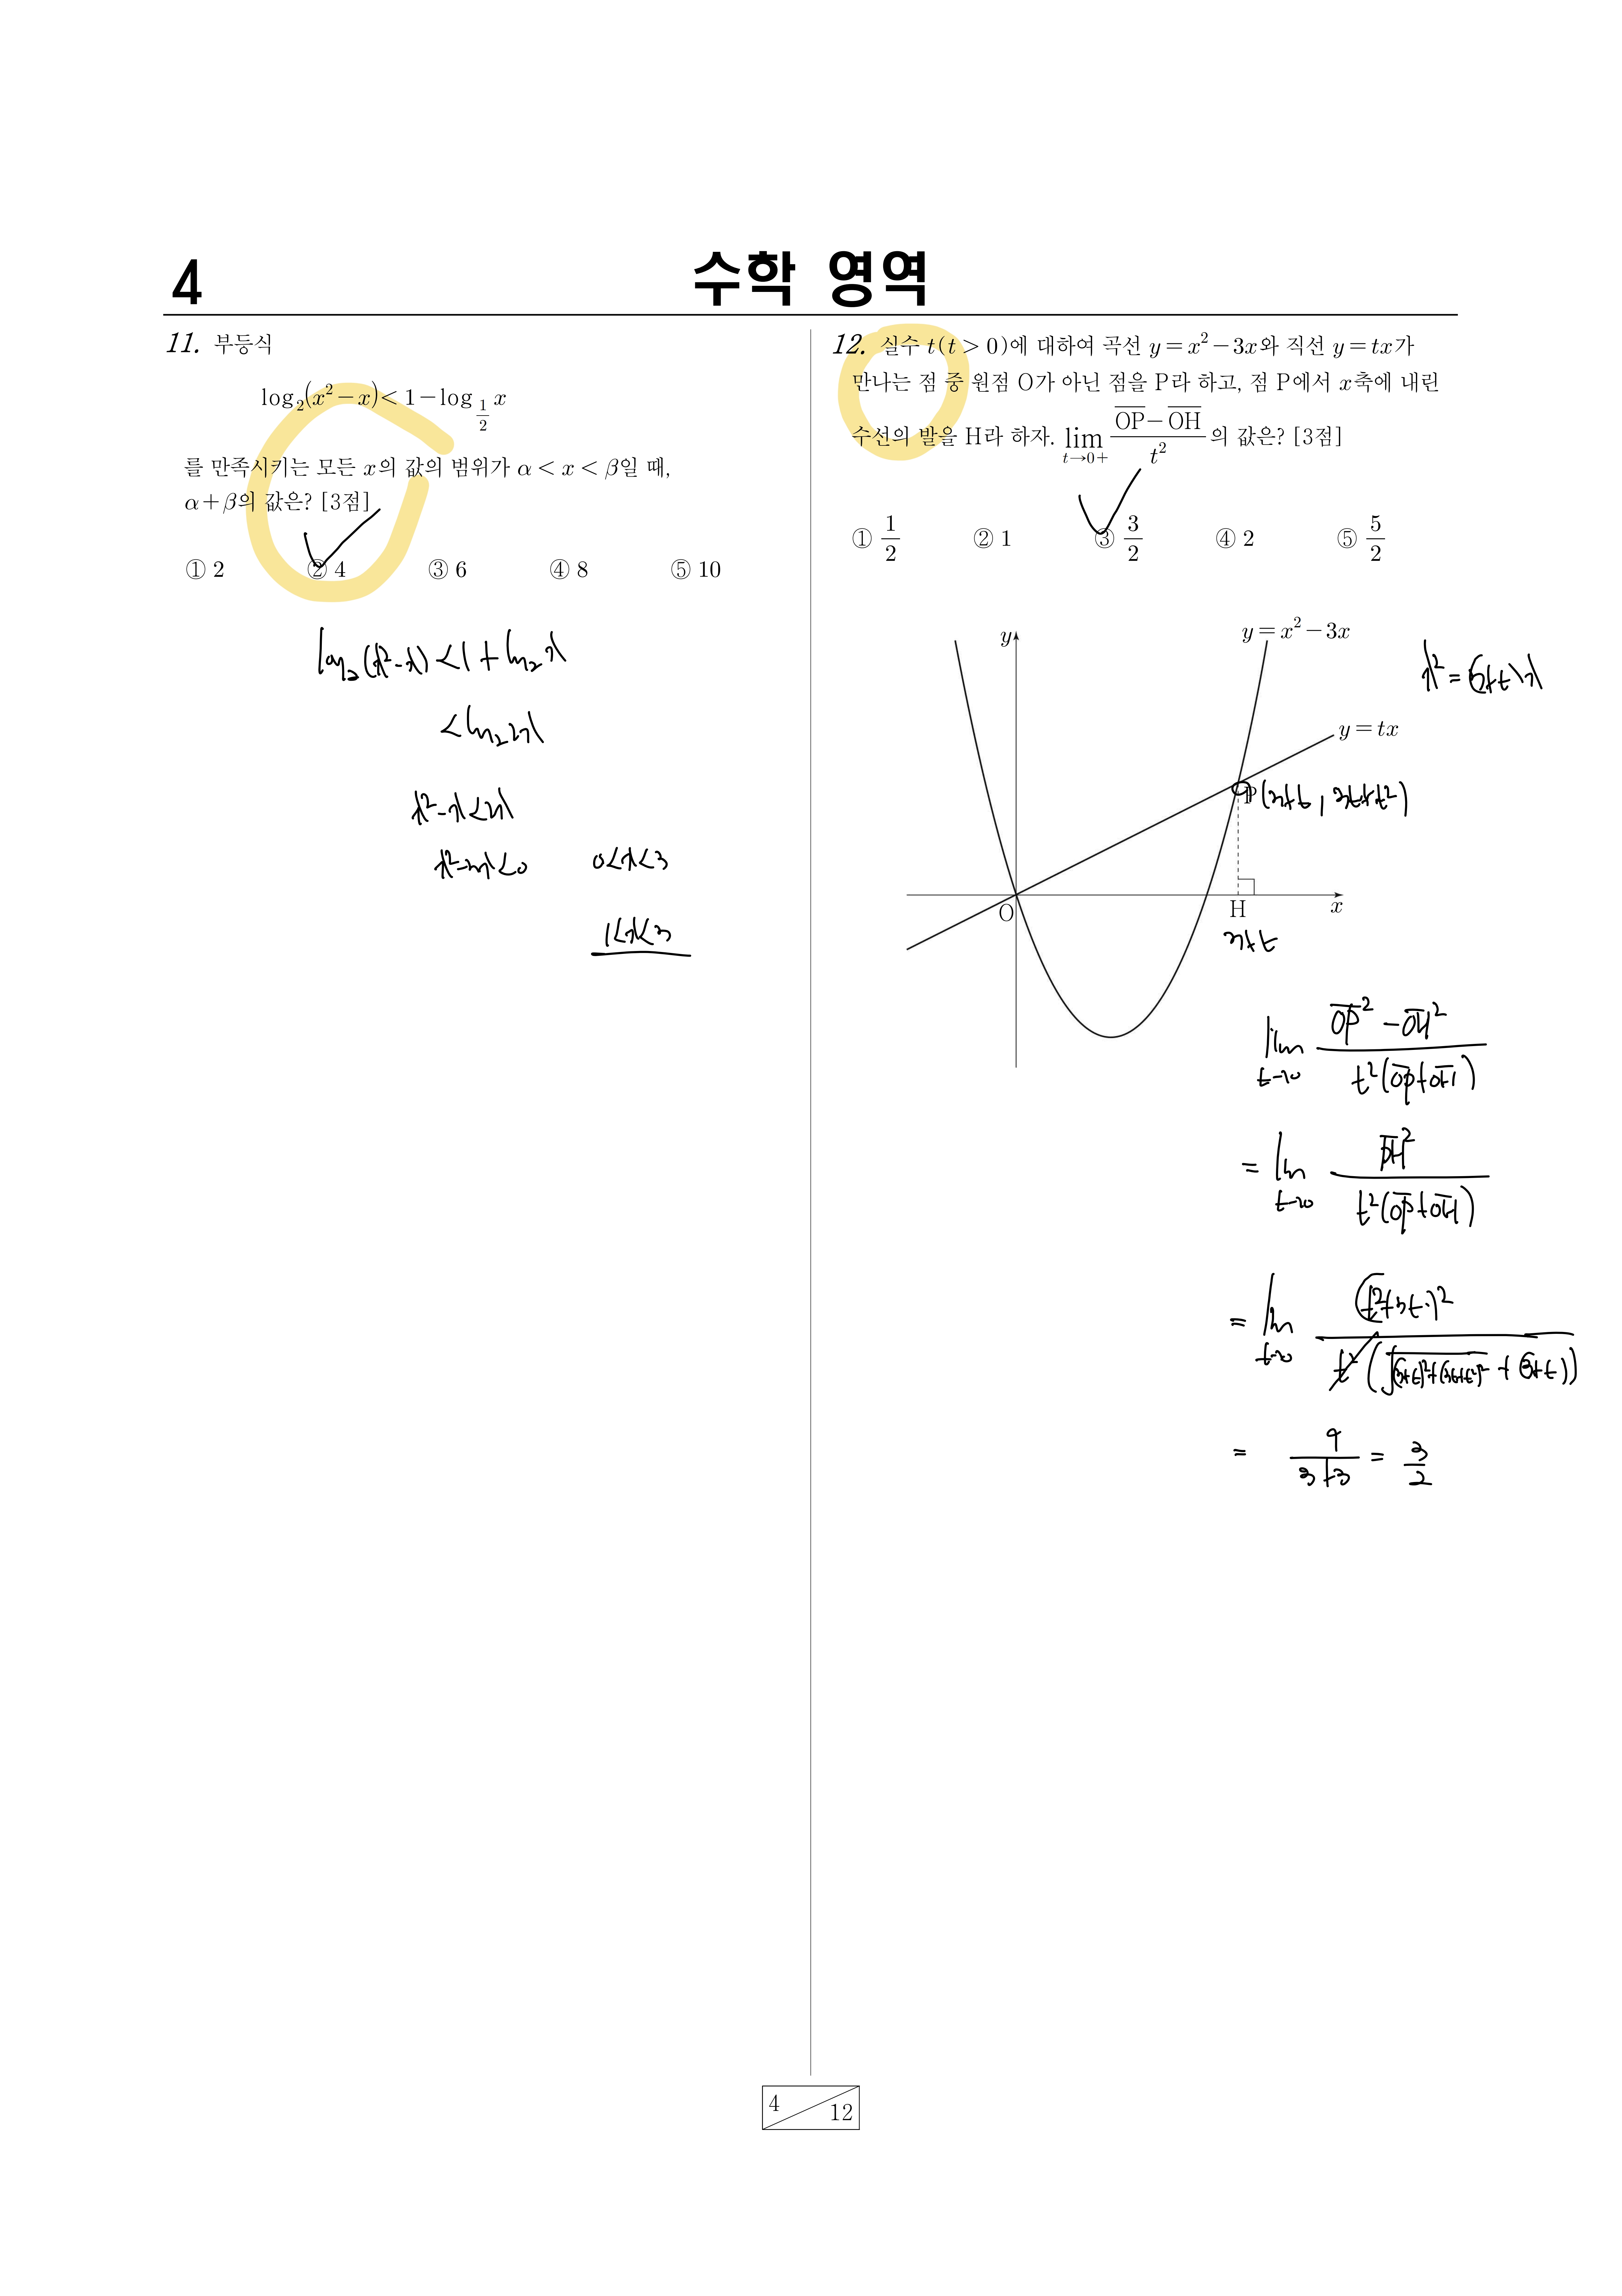 4
수학 영역
11. 부등식
log₂(x²－x)＜1－log_{1/2} x
를 만족시키는 모든 x의 값의 범위가 α＜x＜β일 때,
α＋β의 값은? [3점]
① 2 ② 4 ③ 6 ④ 8 ⑤ 10
log₂(x²-x) < 1 + log₂x
< log₂2x
x²-x<2x
x²-3x<0 0<x<3
1<x<3
12. 실수 t(t＞0)에 대하여 곡선 y＝x²－3x와 직선 y＝tx가
만나는 점 중 원점 O가 아닌 점을 P라 하고, 점 P에서 x축에 내린
수선의 발을 H라 하자. lim_{t→0+} (OP－OH)/t² 의 값은? [3점]
① 1/2 ② 1 ③ 3/2 ④ 2 ⑤ 5/2
y
y＝x²－3x
x² = (3+t)x
y＝tx
P(3+t, 3t+t²)
O
H
x
3+t
lim_{t→0} (OP² - OH²)/(t²(OP+OH))
= lim_{t→0} PH²/(t²(OP+OH))
= lim_{t→0} (t²+3t)²/(t²(√((3+t)²+(3t+t²)²) + (3+t)))
= 9/(3+3) = 3/2
4
12